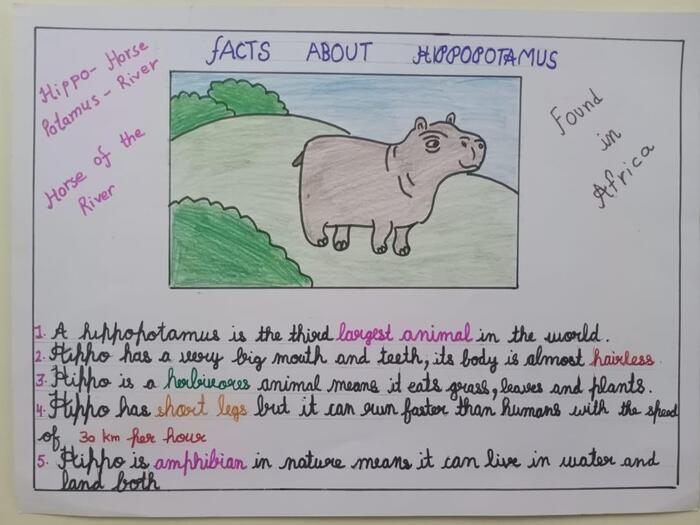 FACTS ABOUT HIPPOPOTAMUS
Hippo- Horse
Potamus - River
Horse of the
River
Found
in
Africa
1. A hippopotamus is the third largest animal in the world.
2. Hippo has a very big mouth and teeth, its body is almost hairless.
3. Hippo is a herbivores animal means it eats grass, leaves and plants.
4. Hippo has short legs but it can run faster than humans with the speed
of 30 km per hour
5. Hippo is amphibian in nature means it can live in water and
land both